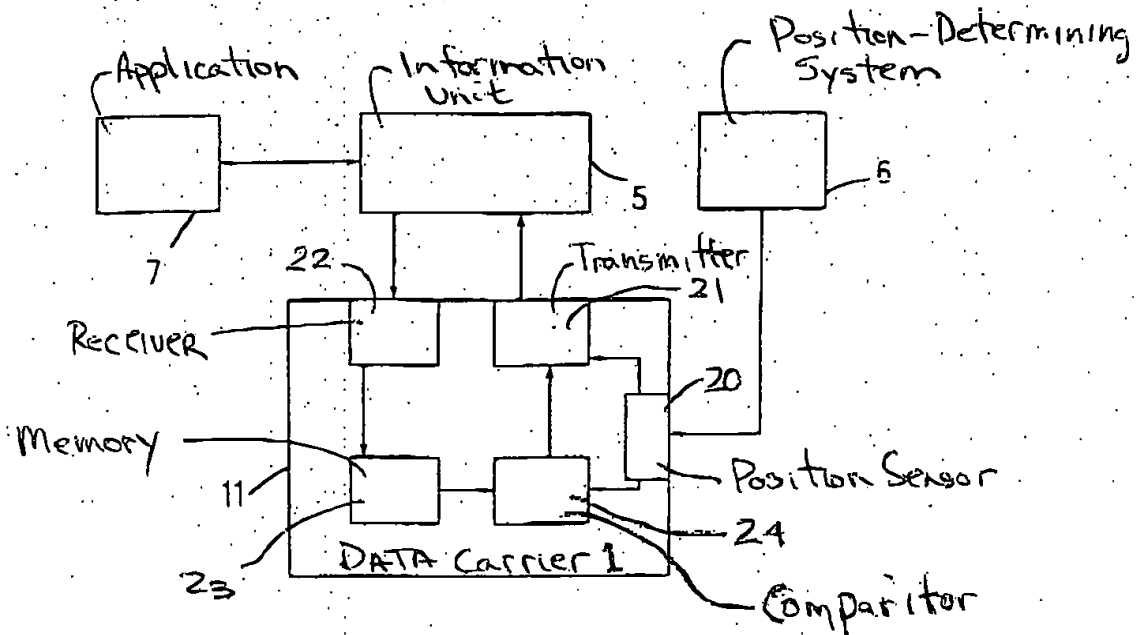 Application
Information
unit
Position-Determining
System
5
6
7
22
Transmitter
21
Receiver
20
Memory
Position Sensor
11
24
23
DATA Carrier 1
Comparitor